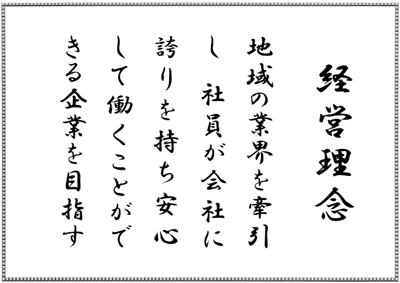 経営理念
地域の業界を牽引
し 社員が会社に
誇りを持ち安心
して働くことがで
きる企業を目指す